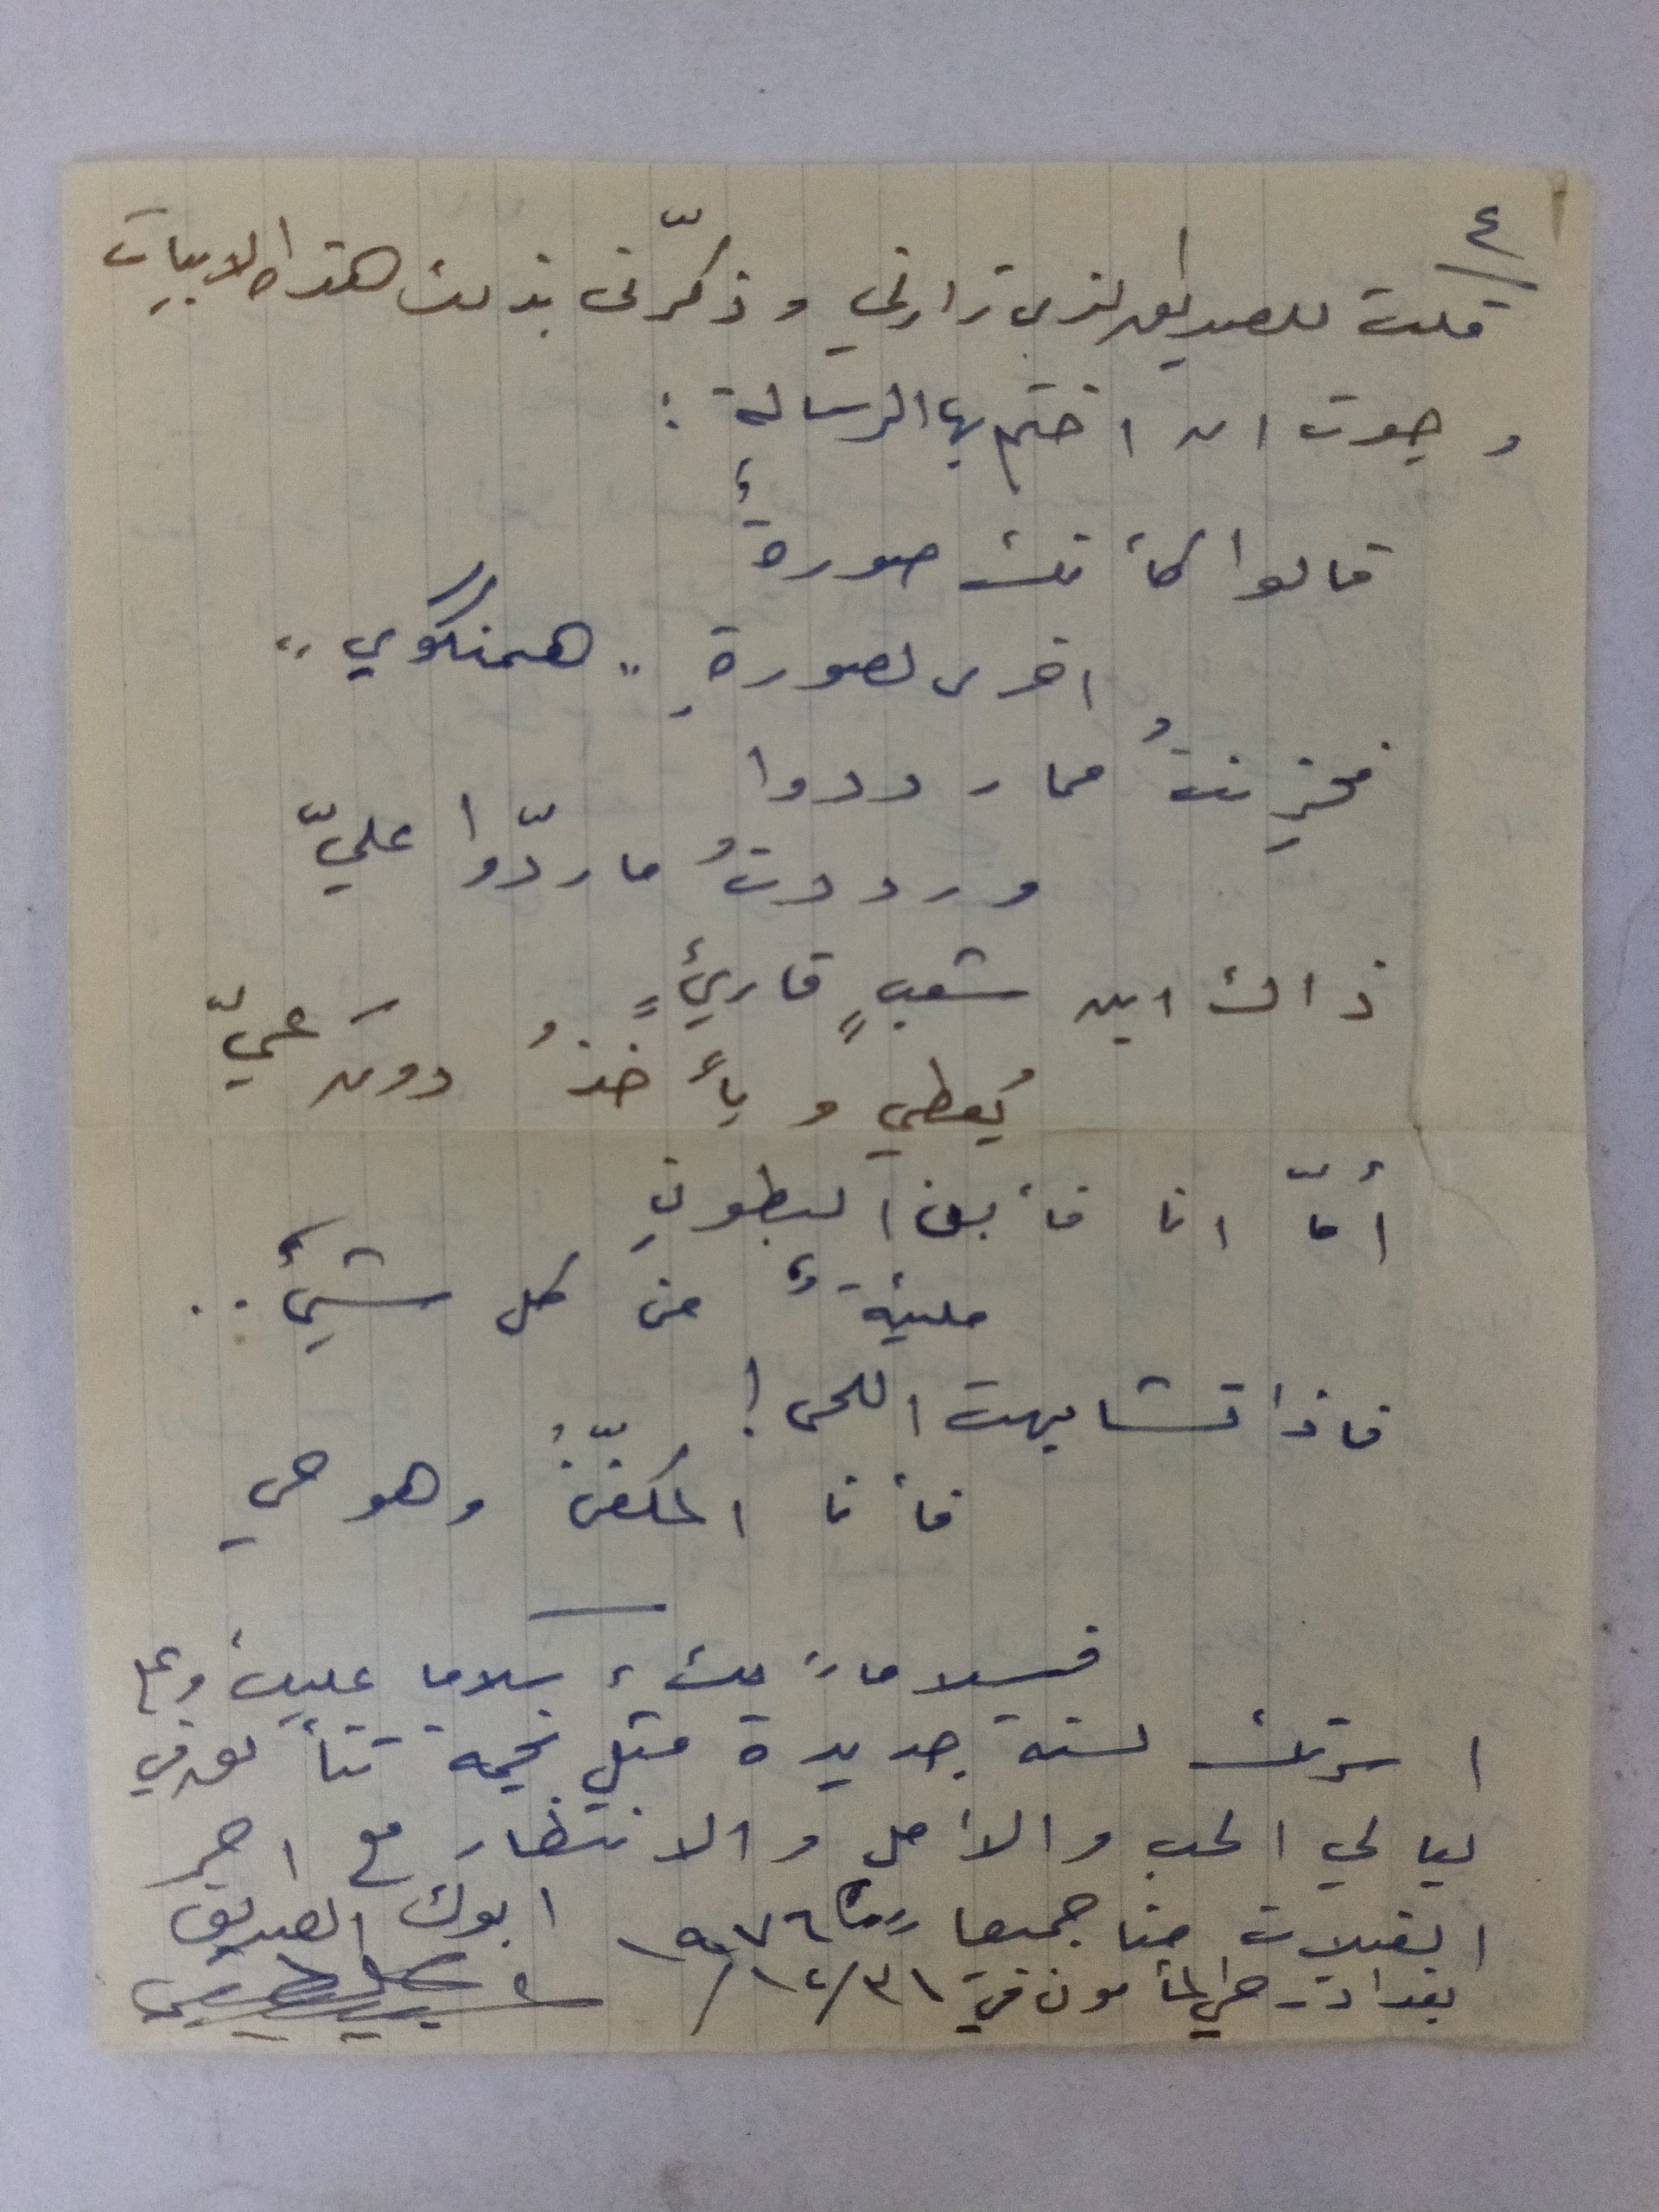 ٤
قلت للصديق الذي زارني وذكّرني بذلك هذه الابيات
وجوت ان اختم بها الرسالة :
قالوا كأنك صورةٌ
اخرى لصورةِ " همنكوي "
فحزنتُ مما رددوا
ورددتُ ما ردّوا عليّ
ذاك ابن شعبٍ قارئٍ
يُعطي ويأخذُ دونَ عيّ
أمّا انا فأبن البطونِ
مليئةٌ من كل شئٍ ..
فاذا تشابهت اللحى !
فأنا المكفّنُ وهو حي
فسلاماً لك ، سلاما عليك وعلى
اسرتك لسنة جديدة مثل نجمة تتألق في
ليالي الحب والأمل والانتظار مع احر
القبلات منا جميعا ابوك الصديق
بغداد - حي المأمون في ٣١/١٢/١٩٧٦